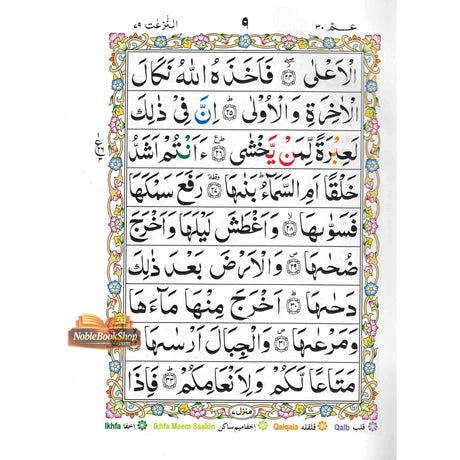 النّٰزعٰت ٧٩ ٩ عـــمّ ٣٠
الْاَعْلٰى ﴿٢٤﴾ فَاَخَذَهُ اللّٰهُ نَكَالَ
الْاٰخِرَةِ وَالْاُوْلٰى ﴿٢٥﴾ اِنَّ فِيْ ذٰلِكَ
لَعِبْرَةً لِّمَنْ يَّخْشٰى ﴿٢٦﴾ ءَاَنْتُمْ اَشَدُّ
خَلْقًا اَمِ السَّمَآءُ ؕ بَنٰىهَا ﴿٢٧﴾ رَفَعَ سَمْكَهَا
فَسَوّٰىهَا ﴿٢٨﴾ وَاَغْطَشَ لَيْلَهَا وَاَخْرَجَ
ضُحٰىهَا ﴿٢٩﴾ وَالْاَرْضَ بَعْدَ ذٰلِكَ
دَحٰىهَا ﴿٣٠﴾ اَخْرَجَ مِنْهَا مَآءَهَا
وَمَرْعٰىهَا ﴿٣١﴾ وَالْجِبَالَ اَرْسٰىهَا ﴿٣٢﴾
مَتَاعًا لَّكُمْ وَلِاَنْعَامِكُمْ ﴿٣٣﴾ فَاِذَا
NobleBookShop
.com
منزل ٧
Ikhfa اخفا Ikhfa Meem Saakin اخفا میم ساکن Qalqala قلقله Qalb قلب